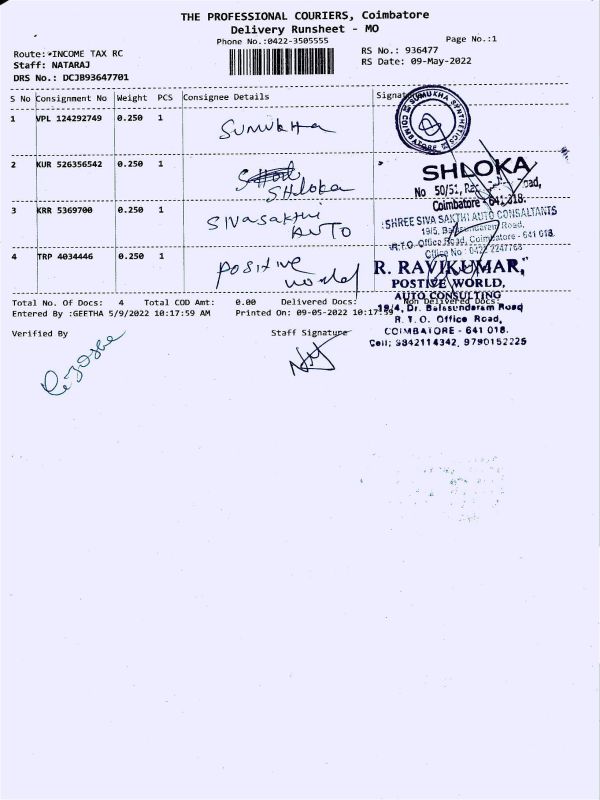 THE PROFESSIONAL COURIERS, Coimbatore
Delivery Runsheet - MO
Phone No.:0422-3505555
Page No.:1
Route:*INCOME TAX RC
RS No.: 936477
Staff: NATARAJ
RS Date: 09-May-2022
DRS No.: DCJB93647701
S No Consignment No Weight PCS Consignee Details
1 VPL 124292749 0.250 1 SUMUKHA
SUMUKHA SYNTHETICS COIMBATORE
2 KUR 526356542 0.250 1
Shloka
SHLOKA
No 50/51,
Coimbatore - 641 018.
3 KRR 5369700 0.250 1 SIVASAKTHI
AUTO
SHREE SIVA SAKTHI AUTO CONSALTANTS
19/5, Balasundaram Road,
R.T.O. Office Road, Coimbatore - 641 018.
Office No : 0422 2247768
4 TRP 4034446 0.250 1 Positive
World
R. RAVIKUMAR,
POSTIVE WORLD,
AUTO CONSULTING
19/4, Dr. Balasundaram Road
R. T. O. Office Road,
COIMBATORE - 641 018.
Cell: 9842114342, 9790152225
Total No. Of Docs: 4 Total COD Amt: 0.00 Delivered Docs: Non Delivered Docs:
Entered By :GEETHA 5/9/2022 10:17:59 AM Printed On: 09-05-2022 10:17:59
Verified By Staff Signature